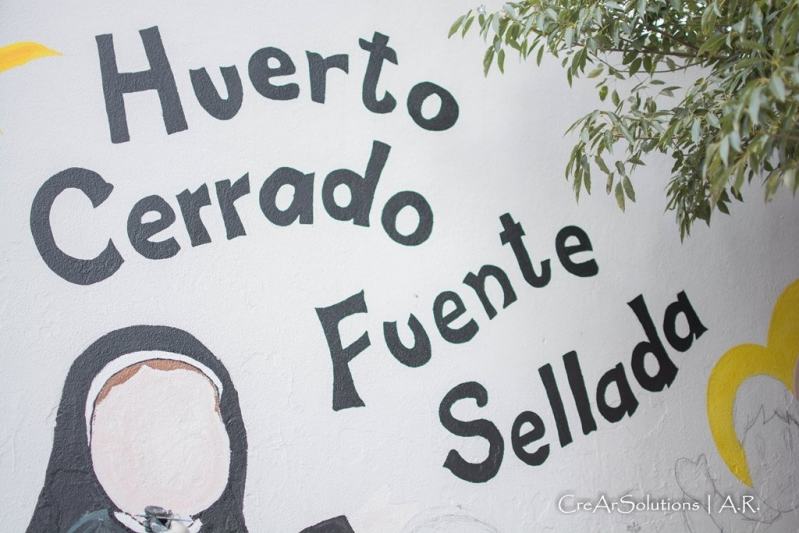 Huerto
Cerrado
Fuente
Sellada
CreArSolutions | A.R.